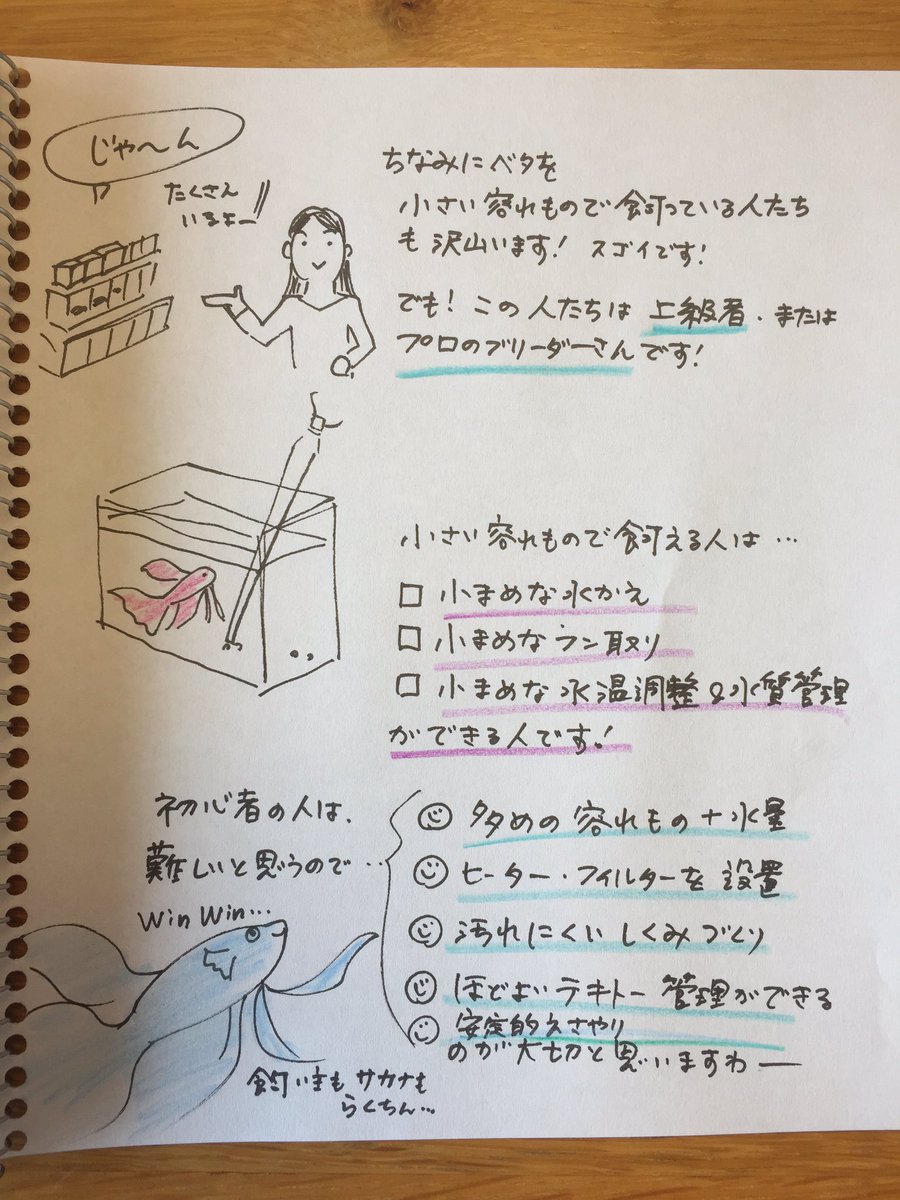 じゃ〜ん
たくさん
いるよー
ちなみにベタを
小さい容れもので飼っている人たち
も沢山います! スゴイです!
でも! この人たちは 上級者・または
プロのブリーダーさんです!
小さい容れもので飼える人は…
小まめな水かえ
小まめなフン取り
小まめな水温調整&水質管理
ができる人です!
初心者の人は、
難しいと思うので…
多めの容れもの+水量
ヒーター・フィルターを設置
汚れにくいしくみづくり
ほどよいテキトー管理ができる
安定的えさやり
のが大切と思いますわー
Win Win…
飼い主もサカナも
らくちん…